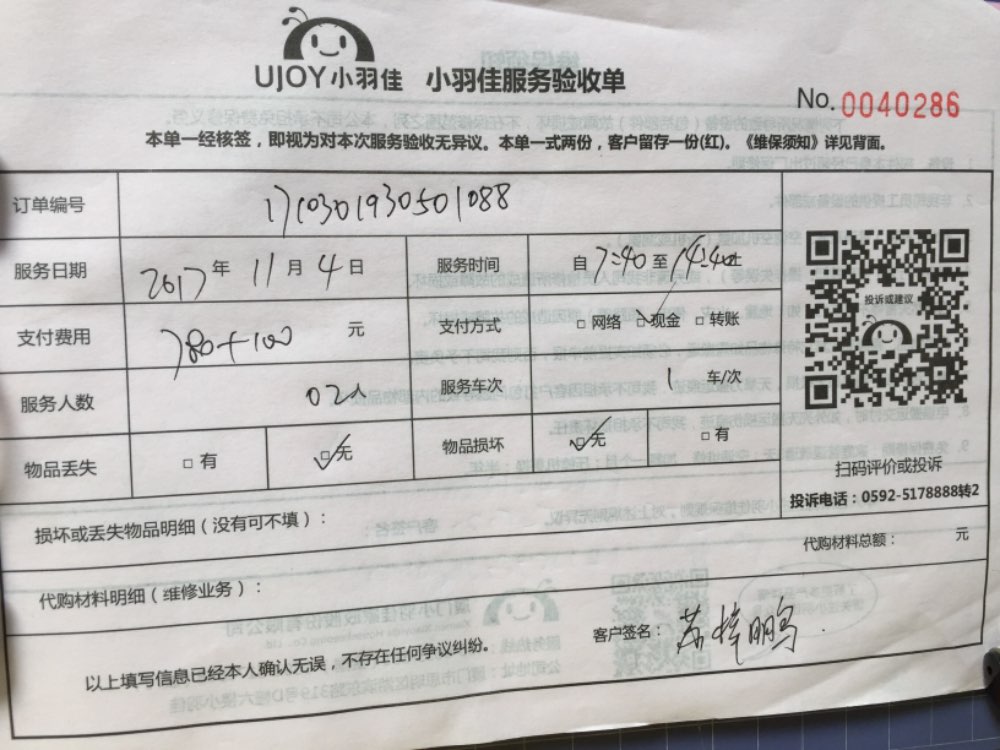 UJOY小羽佳 小羽佳服务验收单
No. 0040286
本单一经核签，即视为对本次服务验收无异议。本单一式两份，客户留存一份(红)。《维保须知》详见背面。
订单编号 1710301930501088
服务日期 2017 年 11 月 4 日 服务时间 自 7:40 至 14:40止
支付费用 780+100 元 支付方式 □ 网络 ☑现金 □ 转账
服务人数 02人 服务车次 1 车/次
物品丢失 □ 有 ☑无 物品损坏 ☑无 □ 有
投诉或建议
扫码评价或投诉
投诉电话：0592-5178888转2
损坏或丢失物品明细（没有可不填）：
代购材料总额： 元
代购材料明细（维修业务）：
客户签名：
以上填写信息已经本人确认无误，不存在任何争议纠纷。